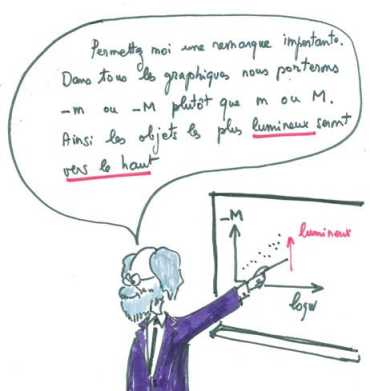 Permettez moi une remarque importante.
Dans tous les graphiques nous porterons
-m ou -M plutôt que m ou M.
Ainsi les objets les plus lumineux seront
vers le haut
-M
lumineux
logW